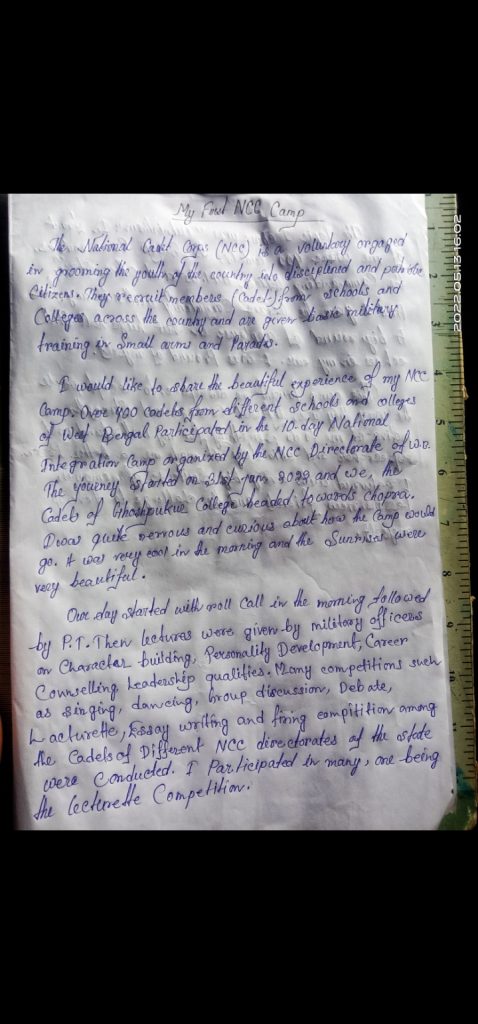 My First NCC Camp
The National Cadet Corps (NCC) is a voluntary engaged
in grooming the youth of the country into disciplined and patriotic
Citizens. They recruit members (Cadet) from schools and
Colleges across the country and are given basic military
training in Small arms and Parades.
I would like to share the beautiful experience of my NCC
Camp. Over 400 cadets from different schools and colleges
of West Bengal Participated in the 10-day National
Integration Camp organized by the NCC Directorate of W.B.
The yourney started on 31st jan, 2022 and we, the
Cadets of Ghoshpukur College headed towards Chopra.
I was quite nervous and curious about how the Camp would
go. It was very cool in the morning and the Sunrises were
very beautiful.
Our day started with roll Call in the morning followed
by P.T. Then lecturas were given by military officers
on Character building, Personality Development, Career
Counselling, Leadership qualities. Many competitions such
as singing, dancing, Group discussion, Debate,
Lacturette, Essay writing and firing compitition among
the Cadets of Different NCC directorates of the state
were Conducted. I Participated in many, one being
the lecturette Competition.
2022.05.13 16:02
1
2
3
4
5
6
7
8
9
10
11